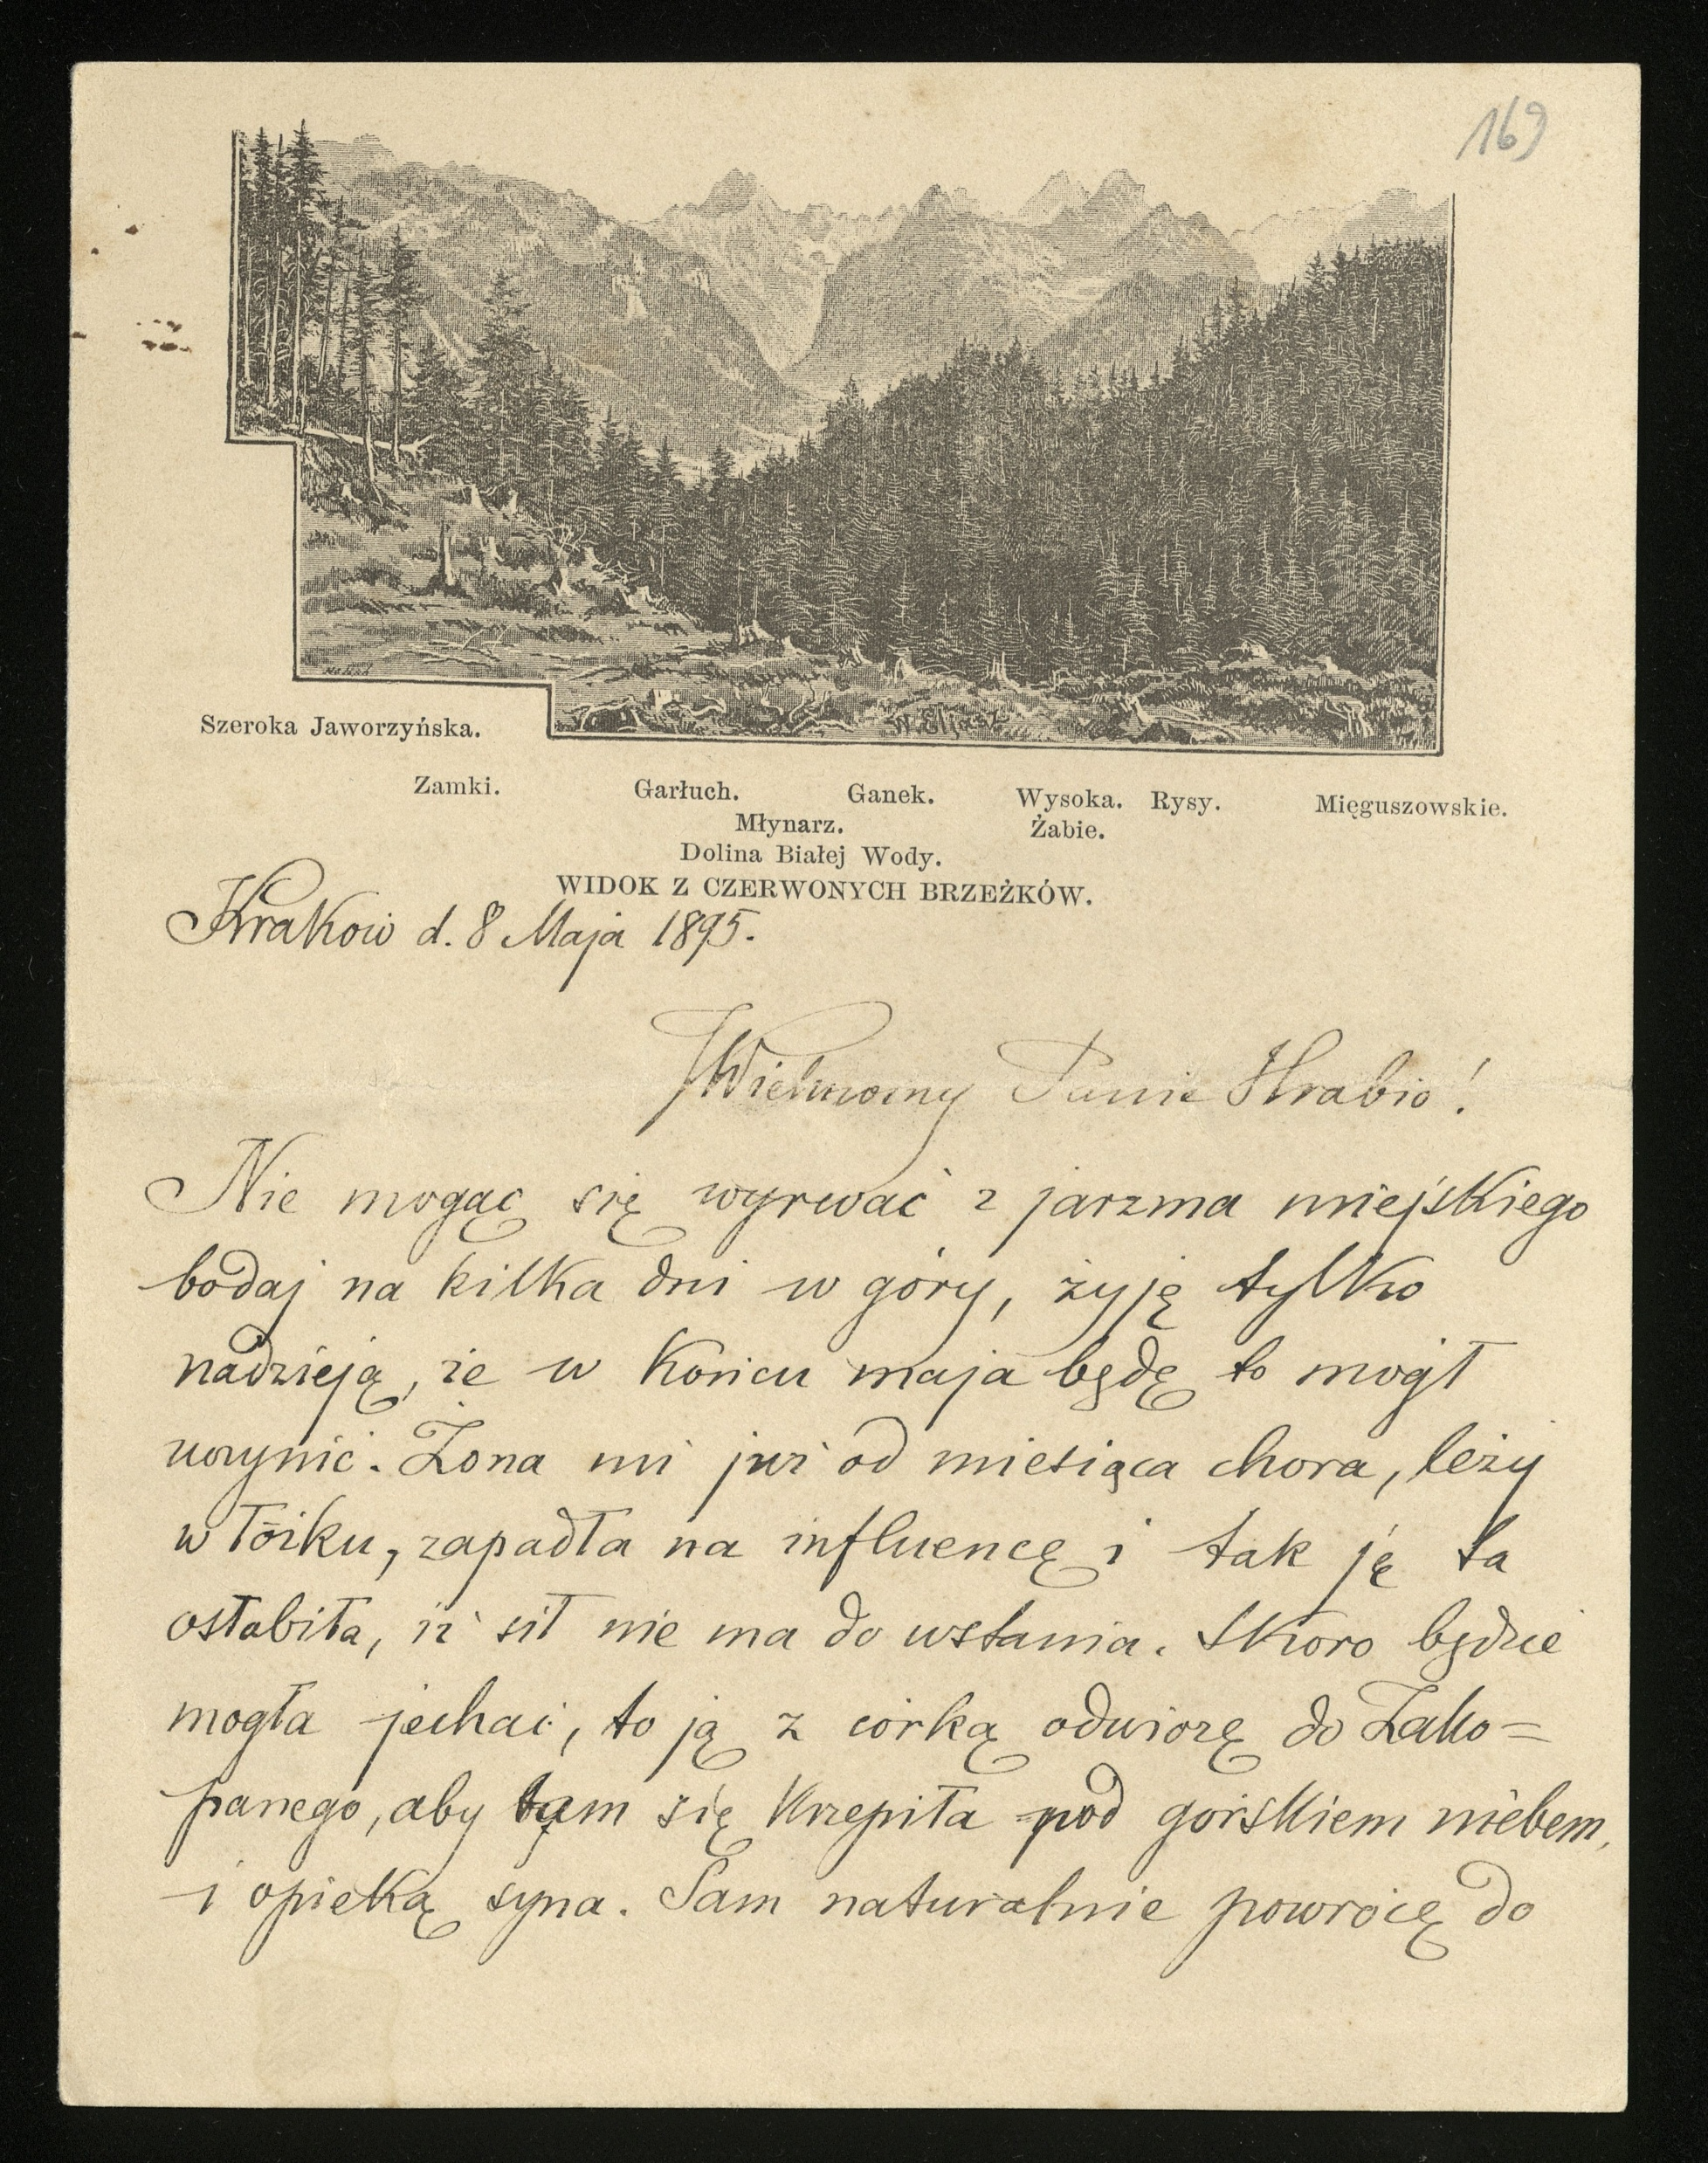 169
W. Eljasz
Szeroka Jaworzyńska.
Zamki. Garłuch. Ganek. Wysoka. Rysy. Mięguszowskie.
Młynarz. Żabie.
Dolina Białej Wody.
WIDOK Z CZERWONYCH BRZEŻKÓW.
Kraków d. 8 Maja 1895.
Wielmożny Panie Hrabio!
Nie mogąc się wyrwać z jarzma miejskiego
bodaj na kilka dni w góry, żyję tylko
nadzieją, że w końcu maja będę to mógł
uczynić. Żona mi już od miesiąca chora, leży
w łóżku, zapadła na influencę i tak ję ta
osłabiła, iż sił nie ma do wstania. Skoro będzie
mogła jechać, to ją z córką odwiozę do Zako=
panego, aby tam się krzepiła pod górskiem niebem,
i opieką syna. Sam naturalnie powrócę do